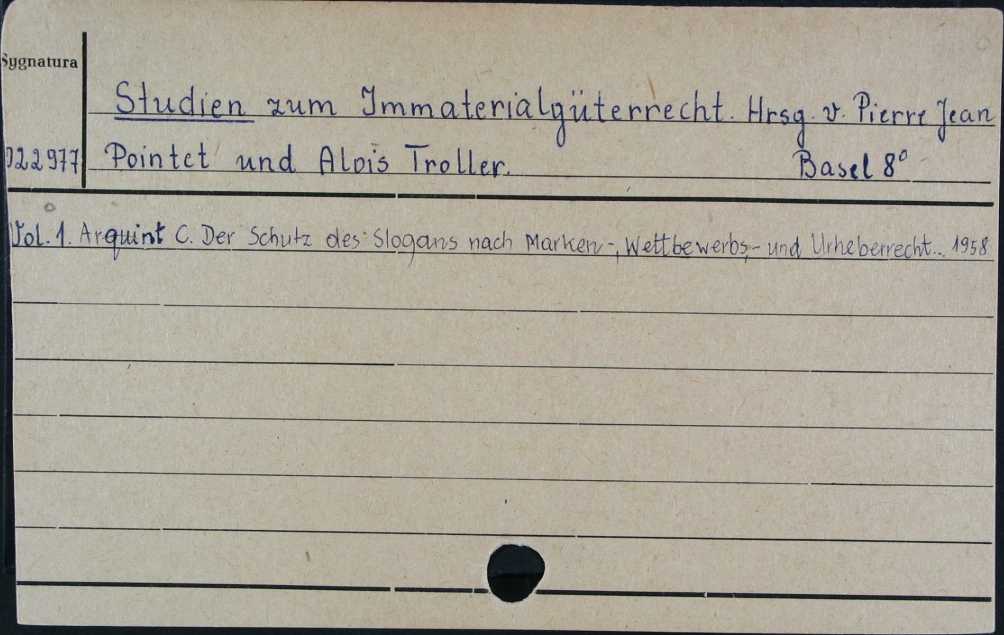 Sygnatura
Studien zum Immaterialgüterrecht. Hrsg. v. Pierre Jean
022977 Pointet und Alois Troller. Basel 8°
Vol. 1. Arquint C. Der Schutz des Slogans nach Marken-, Wettbewerbs,- und Urheberrecht... 1958